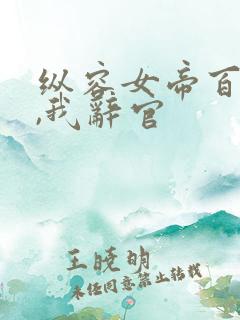 纵容女帝百
,我辞官
王晓明
未经同意禁止转载